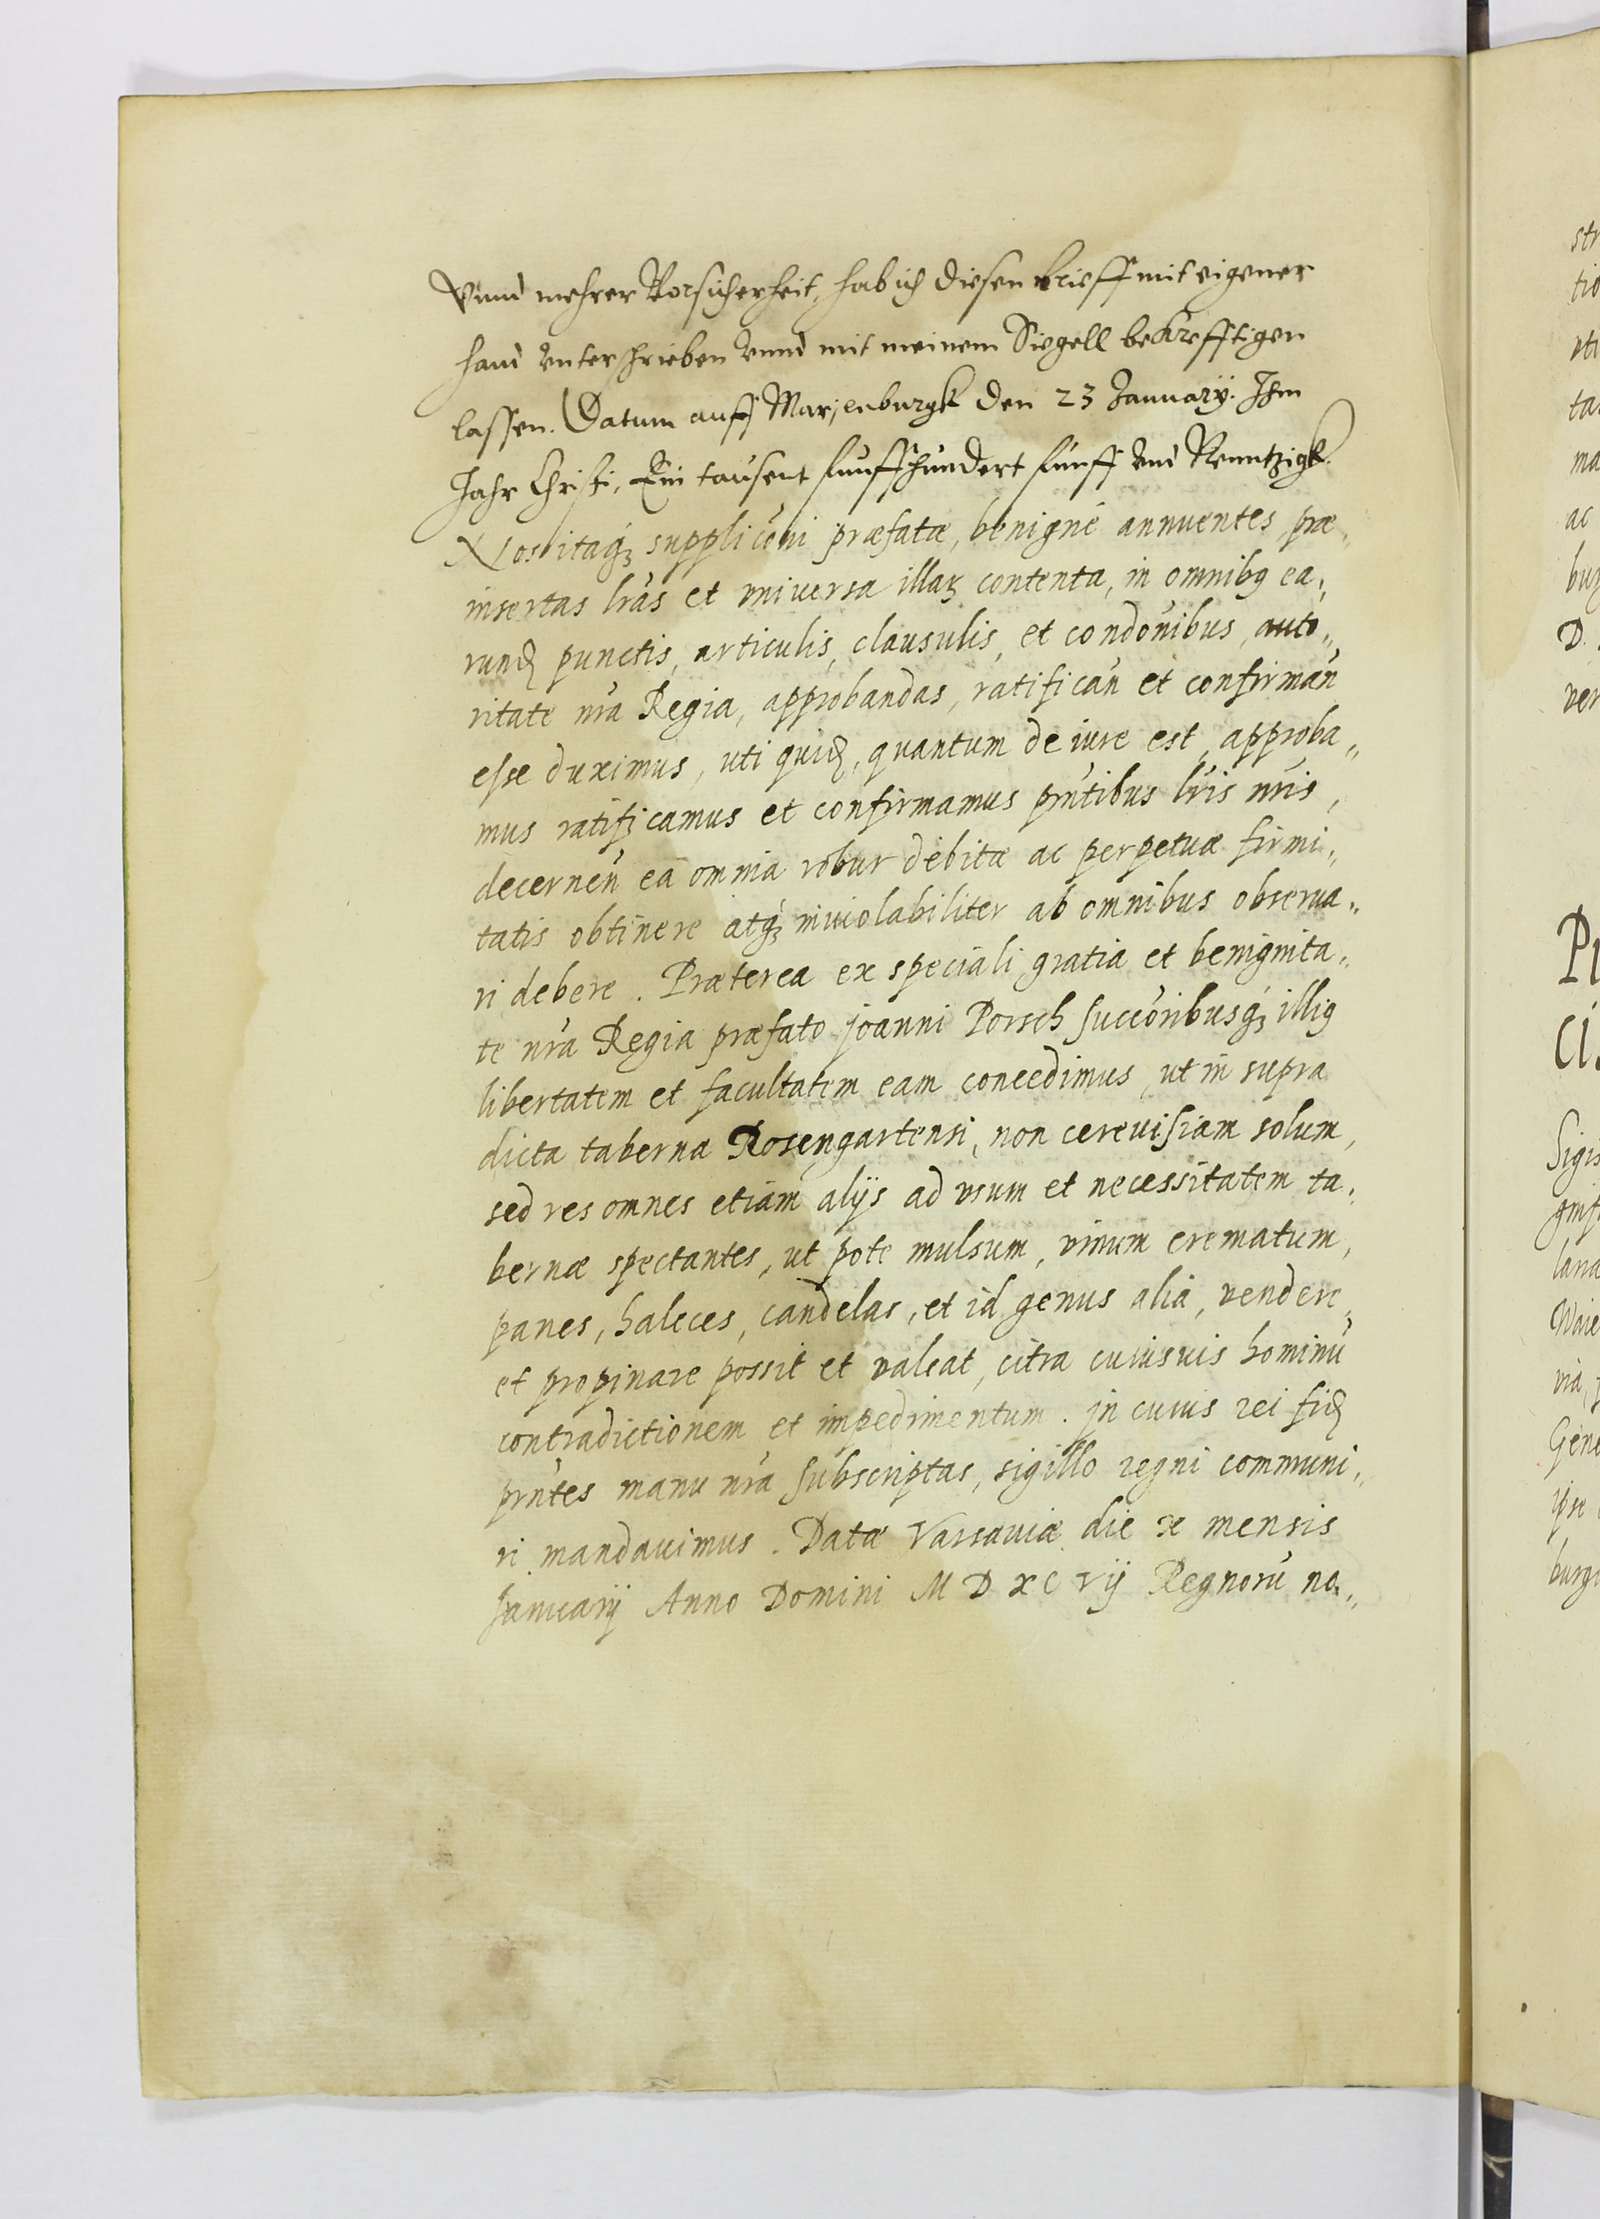 Vnnd mehrer Vorsicherheit, hab ich diesen brieff mit eigener
hand vnterschrieben vnnd mit meinem Siegell bekrefftigen
lassen. Datum auff Marienburgk den 23 January. Ihm
Jahr Christi, Ein tausent funffhundert funff vnd Neuntzigk.
Nos itaq suppliconi præfatæ, benignè annuentes, præ„
insertas lras et vniversa illar contenta, in omnibq ea„
rund punctis, articulis, clausulis, et condonibus, auto„
ritate nra Regia, approbandas, ratifican et confirman
esse duximus, uti quid, quantum de iure est, approba„
mus ratificamus et confirmamus pntibus lris nris,
decernen ea omnia robur debitæ ac perpetuæ firmi„
tatis obtinere atq inuiolabiliter ab omnibus obserua„
ri debere. Præterea ex speciali gratia et benignita„
te nra Regia præfato joanni Porsch succoribusq illiq
libertatem et facultatem eam concedimus, ut in supra
dicta taberna Rosengartensi, non cereuisiam solum,
sed res omnes etiam alijs ad vsum et necessitatem ta„
bernæ spectantes, ut pote mulsum, vinum crematum,
panes, haleces, candelas, et id genus alia, vendere,
et propinare possit et valeat, citra cuiusuis hominū
contradictionem et impedimentum. jn cuius rei fid
pntes manu nra subscriptas, sigillo regni communi„
ri mandauimus. Datæ Varsauiæ die x mensis
Januarij Anno Domini M D XC vij Regnorū no„
str
tio
ta
ma
ac
bur
D.
ver
Pr
Ci
Sigis
gnif
lana
Maie
via,
Gene
ipse
burg